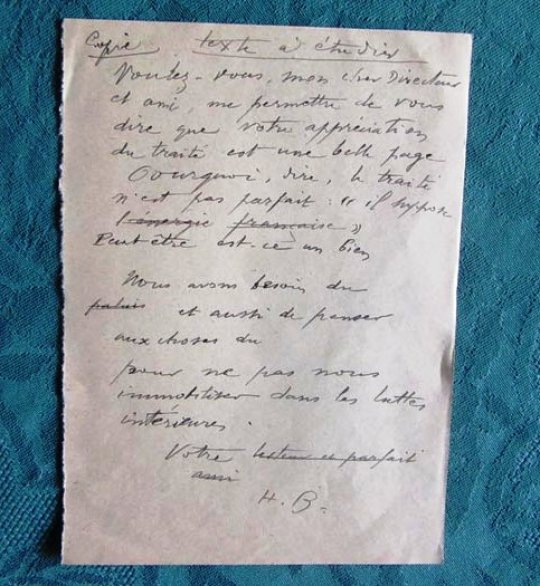 Copie texte à étudier
Voulez-vous, mon cher Directeur
et ami, me permettre de vous
dire que votre appréciation
du traité est une belle page
Pourquoi, dire, le traité
n'est pas parfait : " il suppose
l'énergie française "
Peut être est-ce un bien
Nous avons besoin du
palais et aussi de penser
aux choses du
pour ne pas nous
immobiliser dans les luttes
intérieures.
Votre et parfait
ami
H. B.